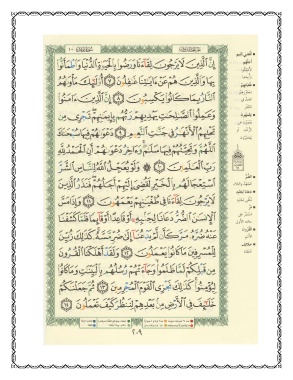 إِنَّ ٱلَّذِينَ لَا يَرْجُونَ لِقَآءَنَا وَرَضُوا۟ بِٱلْحَيَوٰةِ ٱلدُّنْيَا وَٱطْمَأَنُّوا۟
بِهَا وَٱلَّذِينَ هُمْ عَنْ ءَايَـٰتِنَا غَـٰفِلُونَ ٧ أُو۟لَـٰٓئِكَ مَأْوَىٰهُمُ
ٱلنَّارُ بِمَا كَانُوا۟ يَكْسِبُونَ ٨ إِنَّ ٱلَّذِينَ ءَامَنُوا۟
وَعَمِلُوا۟ ٱلصَّـٰلِحَـٰتِ يَهْدِيهِمْ رَبُّهُم بِإِيمَـٰنِهِمْ تَجْرِى مِن
تَحْتِهِمُ ٱلْأَنْهَـٰرُ فِى جَنَّـٰتِ ٱلنَّعِيمِ ٩ دَعْوَىٰهُمْ فِيهَا سُبْحَـٰنَكَ
ٱللَّهُمَّ وَتَحِيَّتُهُمْ فِيهَا سَلَـٰمٌ وَءَاخِرُ دَعْوَىٰهُمْ أَنِ ٱلْحَمْدُ لِلَّهِ
رَبِّ ٱلْعَـٰلَمِينَ ١٠ وَلَوْ يُعَجِّلُ ٱللَّهُ لِلنَّاسِ ٱلشَّرَّ
ٱسْتِعْجَالَهُم بِٱلْخَيْرِ لَقُضِىَ إِلَيْهِمْ أَجَلُهُمْ فَنَذَرُ ٱلَّذِينَ
لَا يَرْجُونَ لِقَآءَنَا فِى طُغْيَـٰنِهِمْ يَعْمَهُونَ ١١ وَإِذَا مَسَّ
ٱلْإِنسَـٰنَ ٱلضُّرُّ دَعَانَا لِجَنۢبِهِۦٓ أَوْ قَاعِدًا أَوْ قَآئِمًا فَلَمَّا كَشَفْنَا
عَنْهُ ضُرَّهُۥ مَرَّ كَأَن لَّمْ يَدْعُنَآ إِلَىٰ ضُرٍّ مَّسَّهُۥ كَذَٰلِكَ زُيِّنَ
لِلْمُسْرِفِينَ مَا كَانُوا۟ يَعْمَلُونَ ١٢ وَلَقَدْ أَهْلَكْنَا ٱلْقُرُونَ
مِن قَبْلِكُمْ لَمَّا ظَلَمُوا۟ وَجَآءَتْهُمْ رُسُلُهُم بِٱلْبَيِّنَـٰتِ وَمَا كَانُوا۟
لِيُؤْمِنُوا۟ كَذَٰلِكَ نَجْزِى ٱلْقَوْمَ ٱلْمُجْرِمِينَ ١٣ ثُمَّ جَعَلْنَـٰكُمْ
خَلَـٰٓئِفَ فِى ٱلْأَرْضِ مِنۢ بَعْدِهِمْ لِنَنظُرَ كَيْفَ تَعْمَلُونَ ١٤
٢٠٩